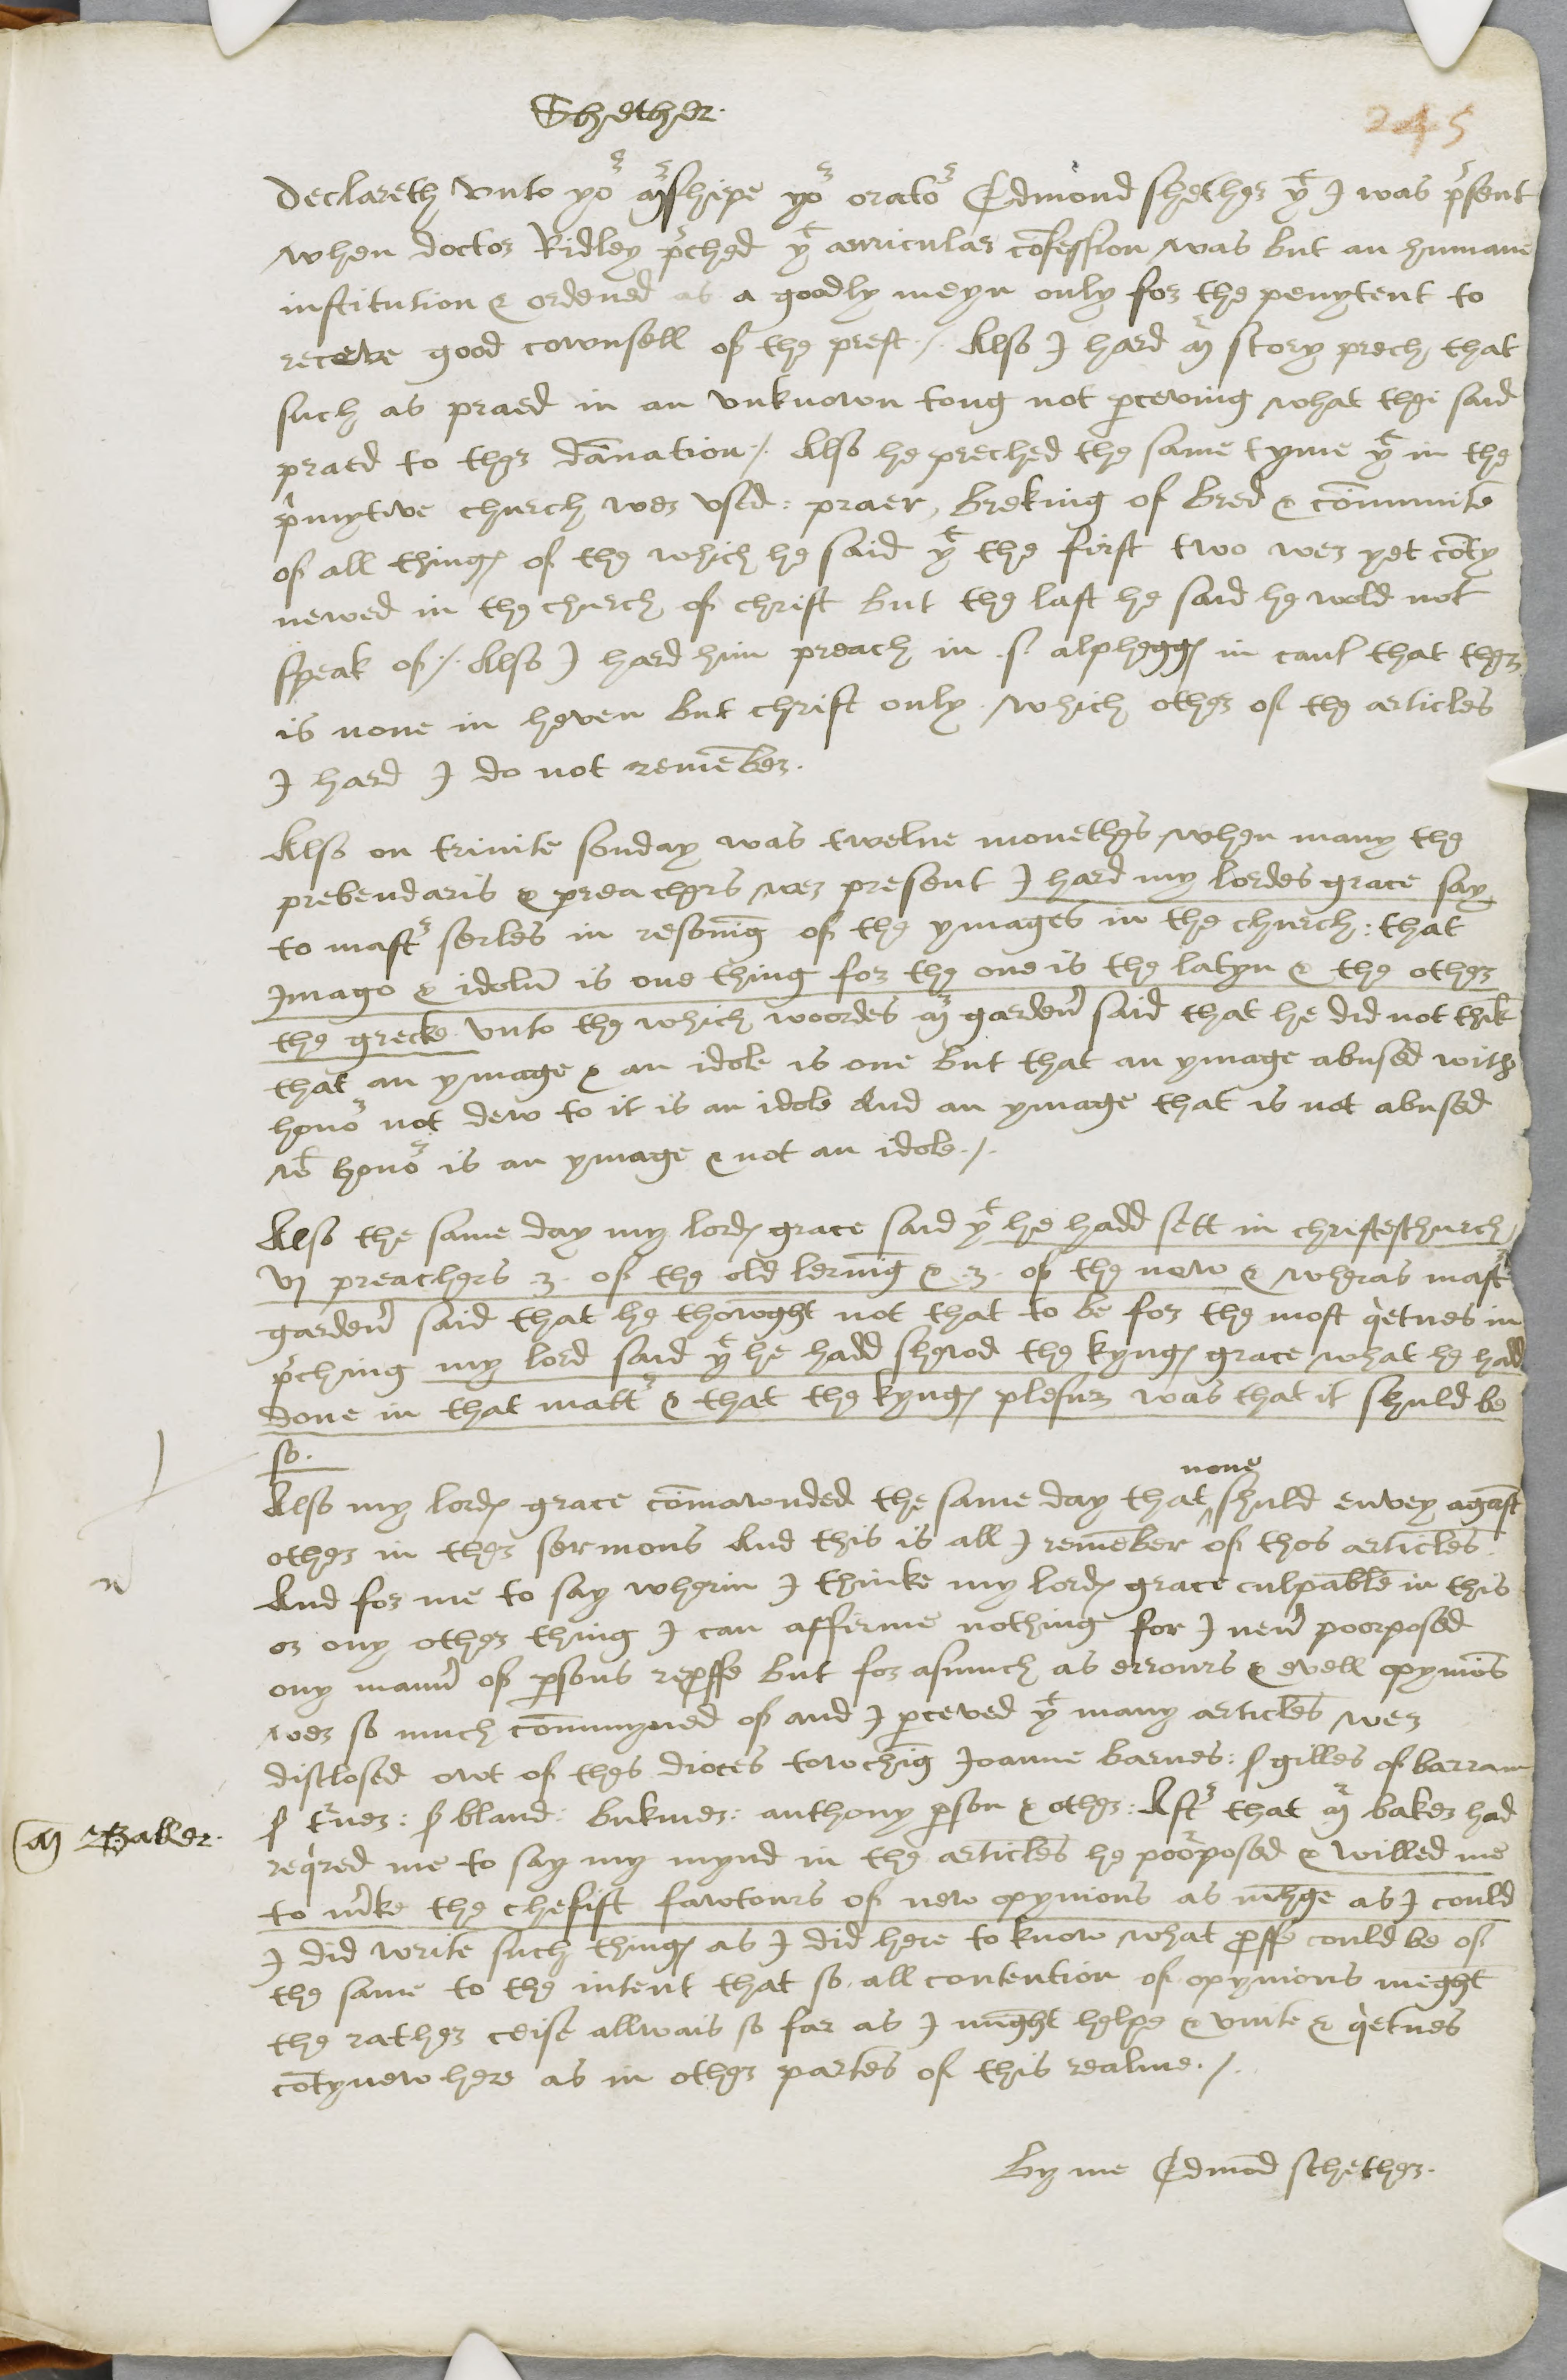 Shether.
245
Declareth vnto yor mrshipe yor orator Edmond shether yt I was prsent
when doctor Ridley prched yt auricular cōfession was but an humane
institution & ordened as a goodly meyn only for the penytent to
receve good cownsell of the prest ./. Also I hard mr story prech, that
such as praed in an vnknown tong not pceving what thei said
praed to ther dānation ./. Also he preched the same tyme yt in the
pimytive church wer vsed : praer, breking of bred & cōmunite
of all things of the which he said yt the first two wer yet cōty
newed in the church of christ but the last he said he wold not
speak of ./. Also I hard him preach in .s. alphegs in cant that ther
is none in heven but christ only . which other of the articles
I hard I do not remēber.
Also on trinite sonday was twelue monethes when many the
prebendaris & preachers wer present I hard my lordes grace say
to mastr serles in resonīg of the ymages in the church : that
Imago & idolū is one thing for the one is the latyn & the other
the greke vnto the which woordes mr garden said that he did not thīk
that an ymage & an idole is one but that an ymage abused with
honor not dew to it is an idole And an ymage that is not abused
wt honor is an ymage & not an idole ./.
Also the same day my lords grace said yt he hadd sett in christeschurch
vj preachers .3. of the old lernīg & .3. of the new & wheras mastr
garden said that he thowght not that to be for the most qietnes in
prching my lord said yt he hadd shewod the kyngs grace what he hadd
done in that mattr & that the kyngs plesur was that it shuld be
so.
Also my lords grace cōmawnded the same day that ^none shuld envey agāst
other in ther sermons And this is all I remēber of thos articles.
And for me to say wherin I thinke my lords grace culpable in this
or ony other thing I can afferme nothing for I neu poorposed
ony mann of psons repffe but for asmuch as errours & evell opyniōs
wer so much cōmmyned of and I pceved yt many articles wer
disclosed owt of thes dioces towchīg Joanne barnes : s gilles of barram
s trner : s bland : bukmer : anthony pson & other : Aftr that mr baker had
M Baker.
reqired me to say my mynd in the articles he poorposed & willed me
to mke the chefist fawtours of new opynions as mche as I could
I did write such things as I did here to know what pffe could be of
the same to the intent that so all contention of opynions meght
the rather ceise allwais so far as I mght helpe & vnite & qietnes
cōtynew here as in other partes of this realme ./.
By me Edmōd shether.